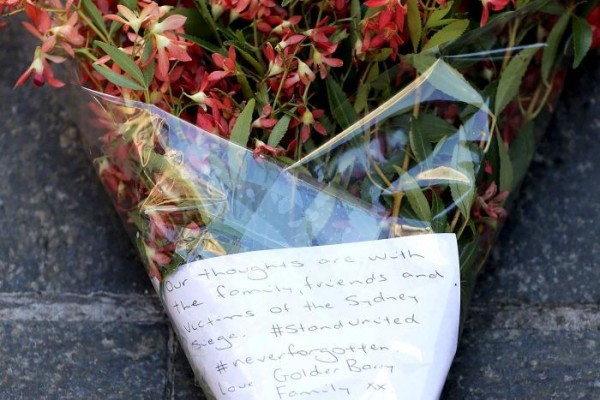 Our thoughts are with
the family, friends and
victims of the Sydney
siege. #StandUnited
#neverforgotten.
Love Golder Barry
Family xx